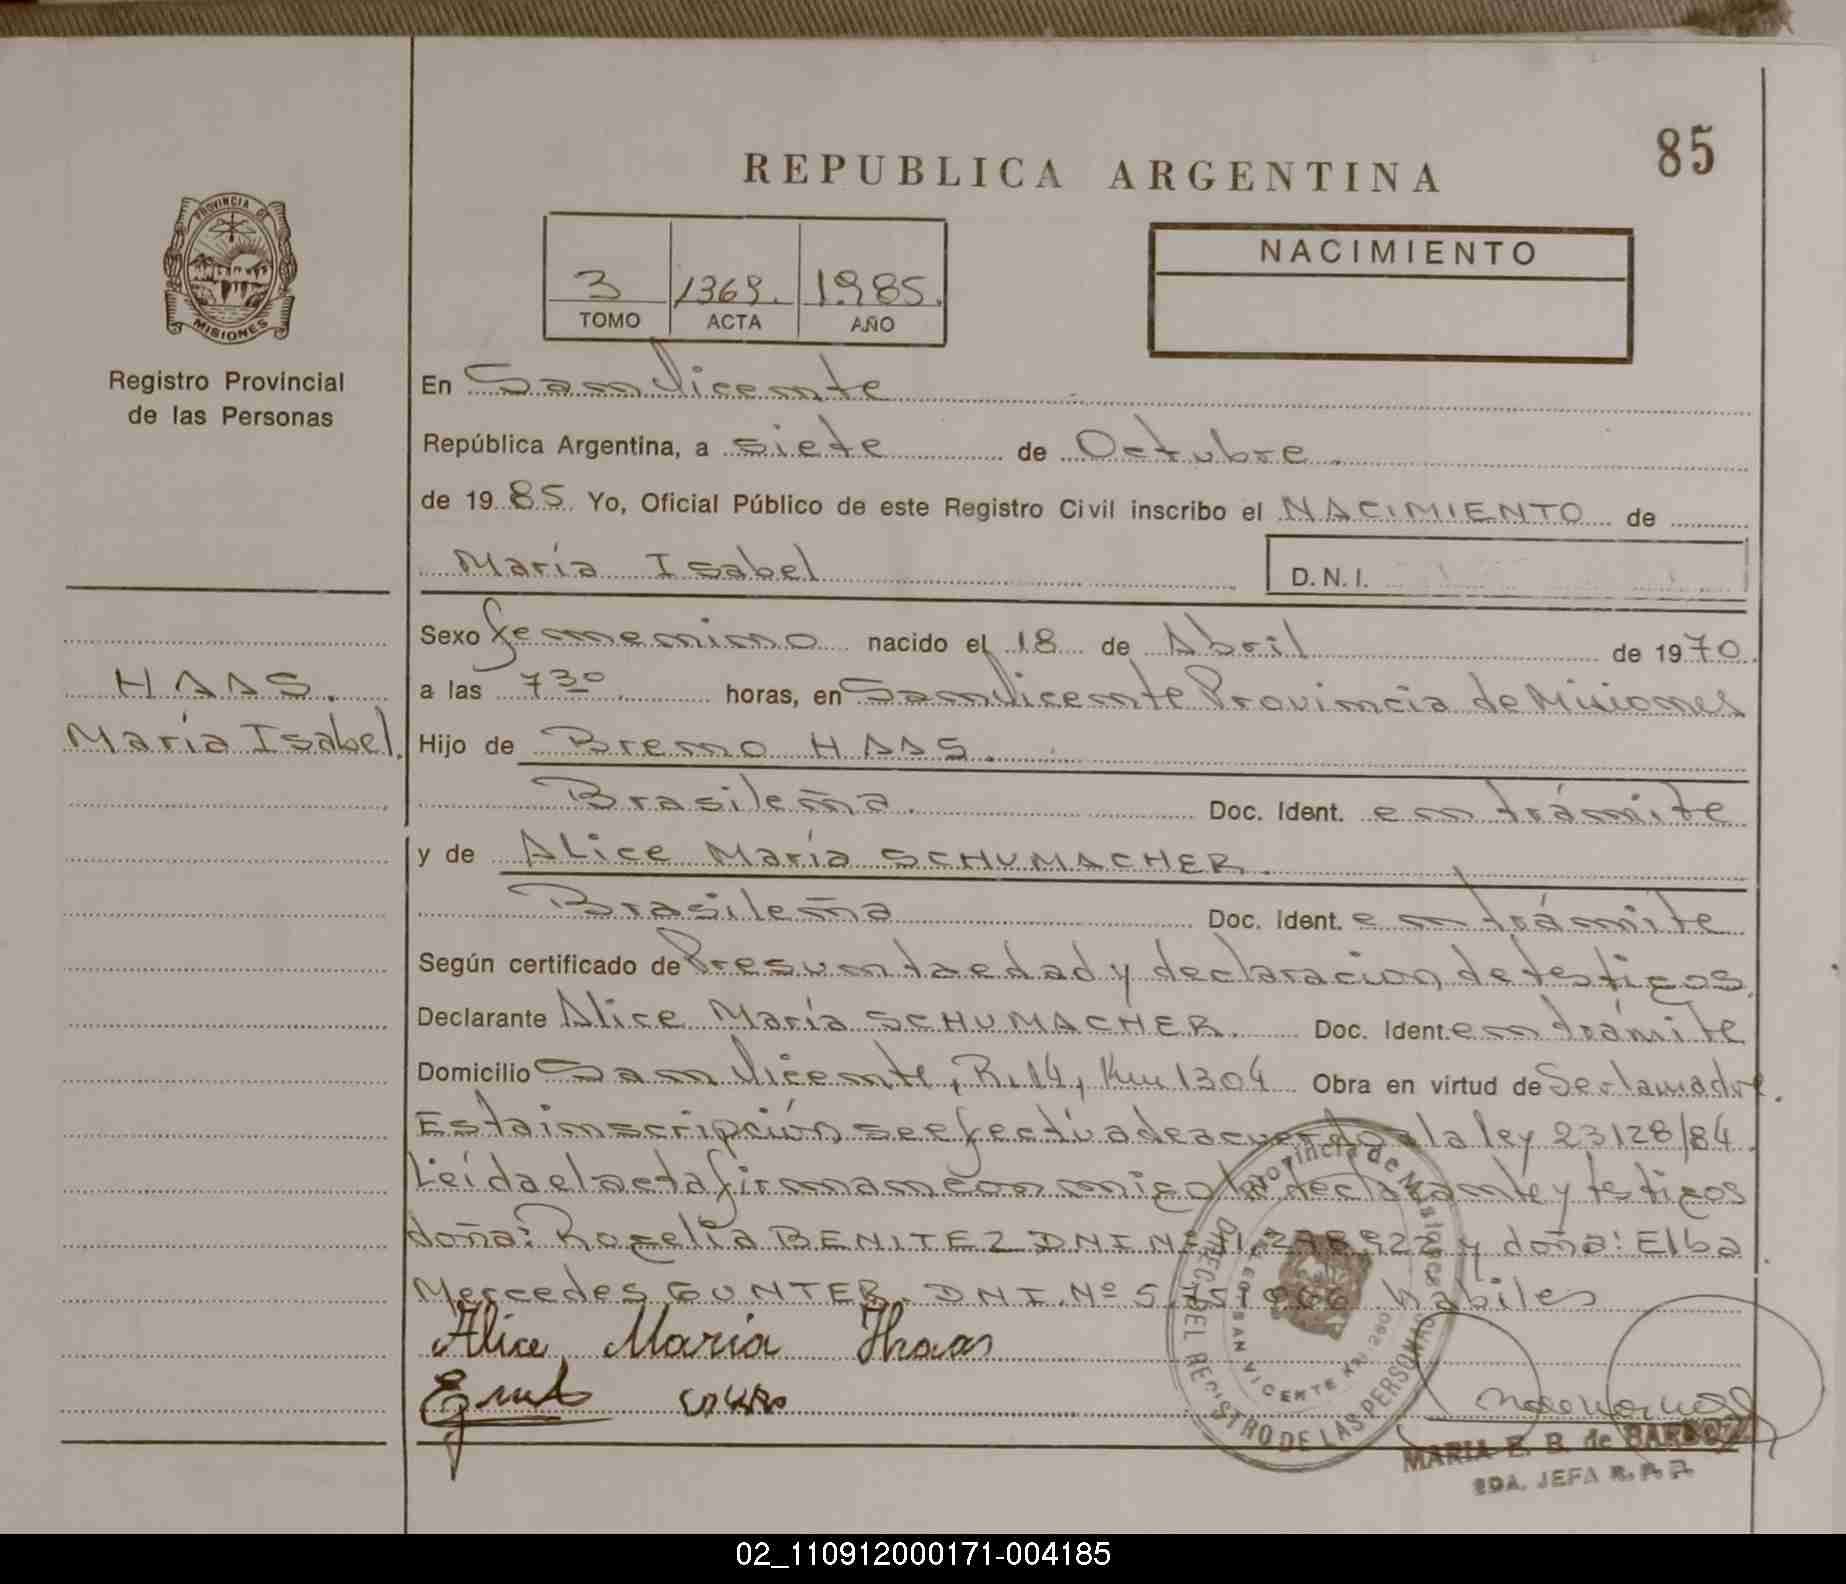 85
REPUBLICA ARGENTINA
PROVINCIA DE
MISIONES
Registro Provincial
de las Personas
3 1369. 1985.
TOMO ACTA AÑO
NACIMIENTO
En San Vicente
República Argentina, a siete de Octubre.
de 1985 Yo, Oficial Público de este Registro Civil inscribo el NACIMIENTO de
María Isabel D.N.I.
Sexo femenino nacido el 18 de Abril de 1970.
HAAS.
María Isabel.
a las 7 30 horas, en San Vicente Provincia de Misiones
Hijo de Breno HAAS.
Brasileña. Doc. Ident. en trámite
y de Alice María SCHUMACHER.
Brasileña Doc. Ident. en trámite
Según certificado de Presunta edad y declaracion de testigos.
Declarante Alice María SCHUMACHER. Doc. Ident. en trámite
Domicilio San Vicente, R.14, Km 1304 Obra en virtud de Ser la madre.
Esta inscripción se efectúa de acuerdo a la ley 23128/84.
Leída el acta firman conmigo la declarante y testigos
doña: Rogelia BENITEZ DNI Nº y doña: Elba
Mercedes GUNTER. DNI. Nº hábiles
Alice Maria Haas
Provincia de Misiones
DIREC. DEL REGISTRO DE LAS PERSONAS
SAN VICENTE
MARIA E. B. de BARBOZ
JEFA R. P. P.
02_110912000171-004185